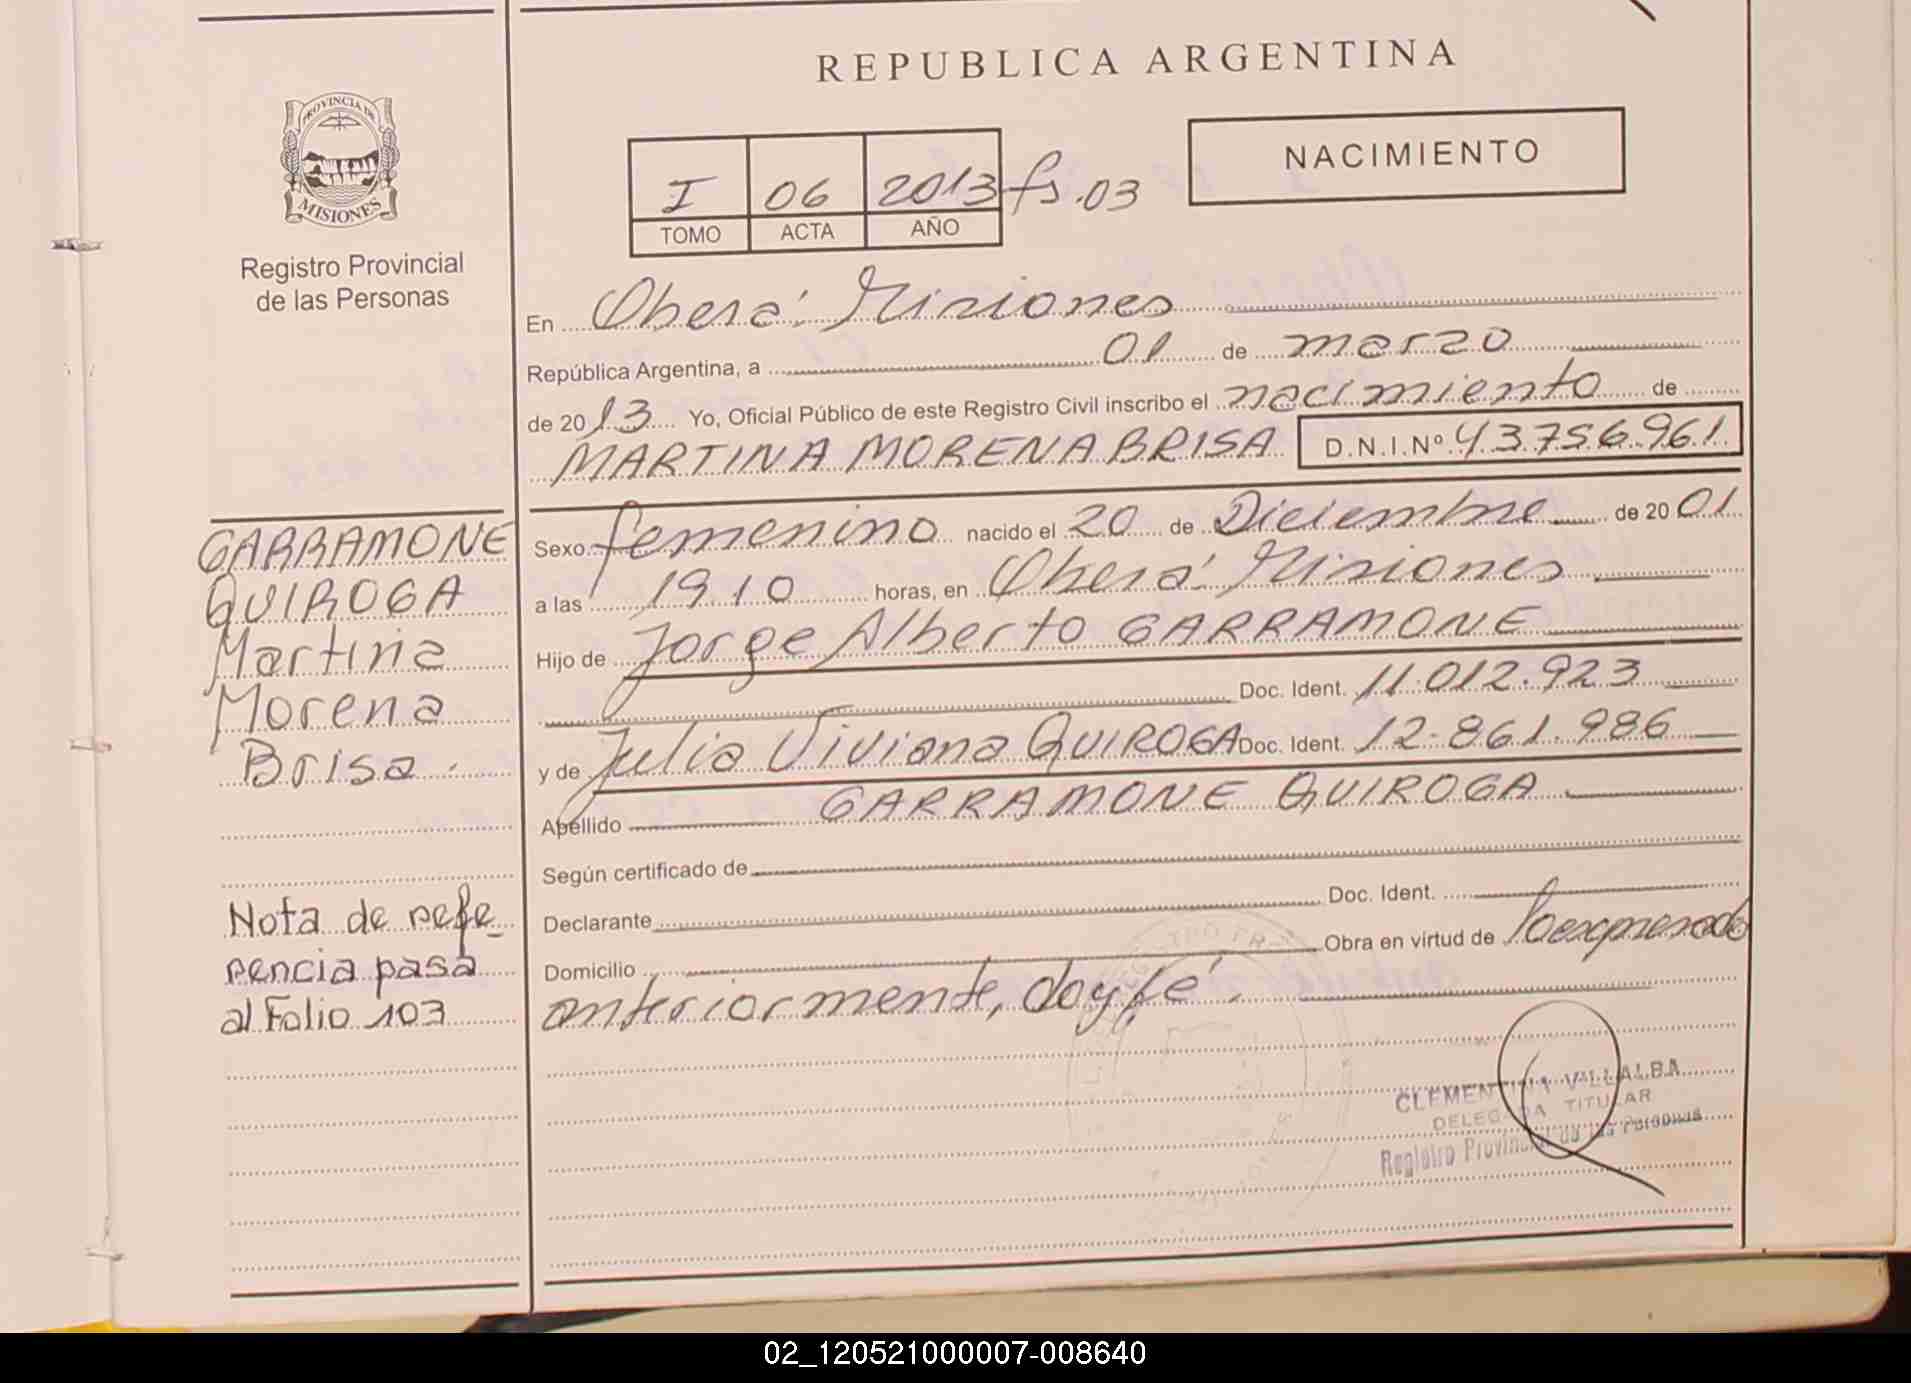 REPUBLICA ARGENTINA
PROVINCIA DE
MISIONES
Registro Provincial
de las Personas
NACIMIENTO
I 06 2013 fs.03
TOMO ACTA AÑO
En Oberá. Misiones
República Argentina, a 01 de marzo
de 2013 Yo, Oficial Público de este Registro Civil inscribo el nacimiento de
MARTINA MORENA BRISA D.N.I.Nº 43.756.961
Sexo femenino nacido el 20 de Diciembre de 2001
a las 19 10 horas, en Oberá. Misiones
Hijo de Jorge Alberto GARRAMONE
Doc. Ident. 11.012.923
y de Julia Viviana QUIROGA Doc. Ident. 12.861.986
Apellido GARRAMONE QUIROGA
Según certificado de
Declarante Doc. Ident.
Domicilio Obra en virtud de lo expresado
anteriormente, doy fé.
GARRAMONE
QUIROGA
Martina
Morena
Brisa.
Nota de refe_
rencia pasa
al Folio 103
CLEMENTINA VILLALBA
DELEGADA TITULAR
Registro Provincial de las Personas
02_120521000007-008640